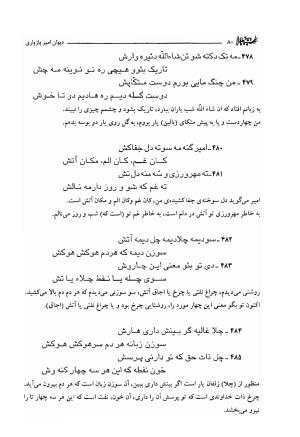 ۸۰
دیوان امیر پازواری
۴۷۸- مه تک دکته شو ئن شاءاللّه دئیره وارش
تاریک بئوو هیچی ره نو نوینه مه چش
۴۷۹- من چنگ مایی بورم دوست متکاپش
دوست گلسله دیم ره هادیم در تا خوش
به زبانم افتاد که ان شاء الله شب باران ببارد، تاریک بشود و چشمم چیزی را نبیند.
من چهاردست و پا به پیش متکای (بالین) یار بروم، به گل روی یار دو بوسه بدهم.
۴۸۰- امیر گنه مه سوته دل جفاکش
کان غم، کان الم، مکان آتش
۴۸۱- ته مهرورزی وُ مِنه دل تش
ته غم که شو و روز دارمه نالش
امیر می‌گوید دل سوخته‌ی جفا کشیده‌ی من، کان غم وکان الم و مکان آتش است.
به خاطر مهرورزی تو آتش در دلم است، به خاطر غم تو (است که) شب و روز می‌نالم.
۴۸۲- سودیمه چلادیمه چل دیمه آتش
سوزن دیمه که هر دم هوکش هوکش
۴۸۳- دی تو بئو معنی این چاروش
سوی چسله یا نفط چلاء یا تش
روشنی می‌دیدم، چراغ نفتی یا چرخ یا اجاق آتش، سو سوزنی می‌دیدم که هر دم دم بالا می‌کشید.
اکنون تو بگو معنی این چهار مورد را، روشنایی یا چرخ بود و چراغ نفتی یا آتش (اجاق).
۴۸۴- چلا غالیه گر بینش داری هارش
سوزن زبانه هر دم سرهوکش هوکش
۴۸۵- چل ذات حق که تو دارنی پرسش
خون نفطه که این هر سه چهار کنه وش
منظور از (چلا) زلفان یار است اگر بینش داری ببین، آن سوزن زبان است که هر دم بیرون می‌آید.
چرخ ذات خداوندی است که تو پرسش آن را داری، آن خون، نفت است که این هر سه چهار تا را
نیرو می‌بخشد.